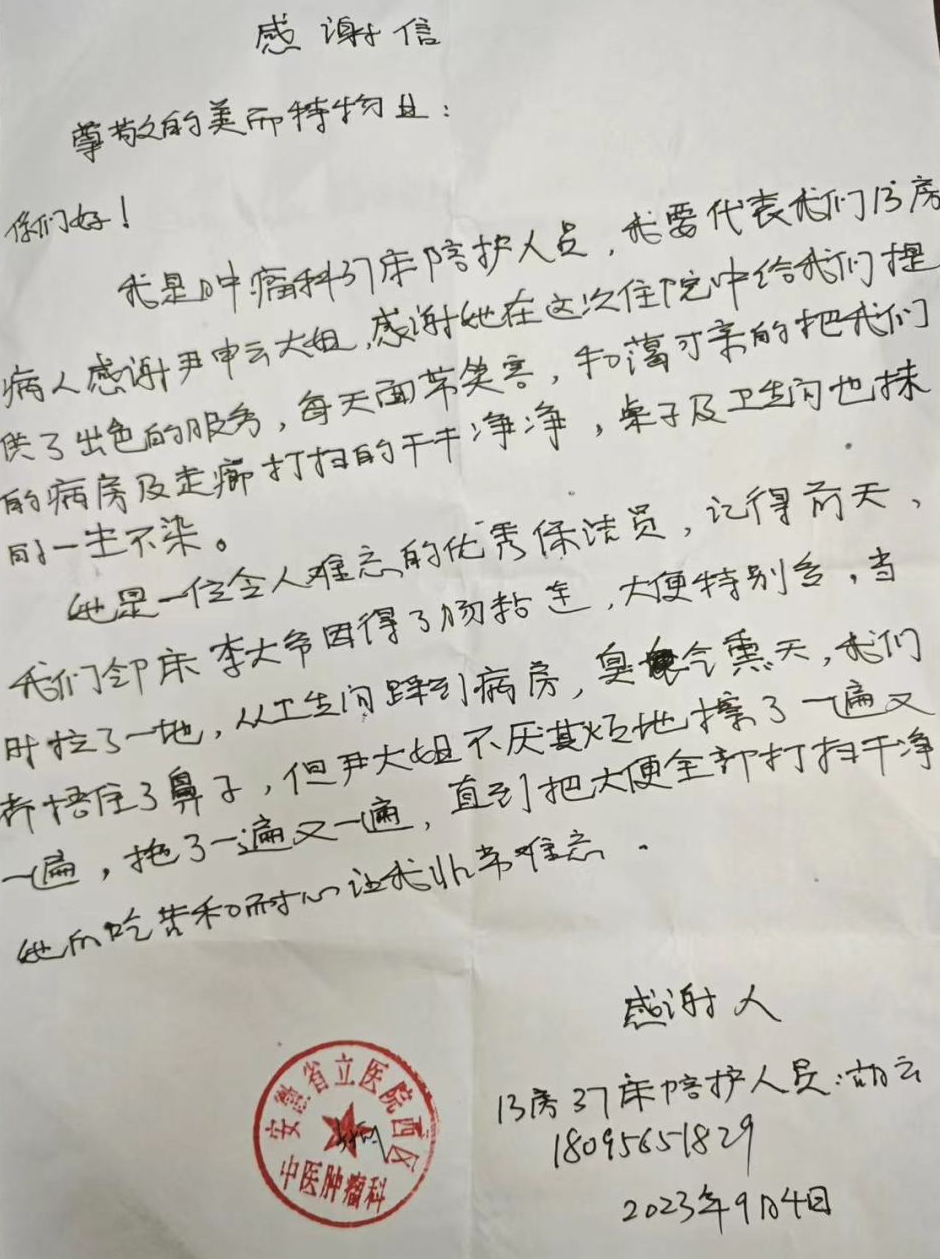 感谢信
尊敬的美而特物业：
你们好！
我是肿瘤科37床陪护人员，我要代表我们13房
病人感谢尹申云大姐，感谢她在这次住院中给我们提
供了出色的服务，每天面带笑容，和蔼可亲的把我们
的病房及走廊打扫的干干净净，桌子及卫生间也抹
的一尘不染。
她是一位令人难忘的优秀保洁员，记得前天，
我们邻床李大爷因得了肠粘连，大便特别多，当
时拉了一地，从卫生间踩到病房，臭气熏天，我们
都捂住了鼻子，但尹大姐不厌其烦地擦了一遍又
一遍，拖了一遍又一遍，直到把大便全部打扫干净
她的吃苦和耐心让我非常难忘。
感谢人
13房37床陪护人员：胡云
18095651829
2023年9月4日
安徽省立医院西区
中医肿瘤科